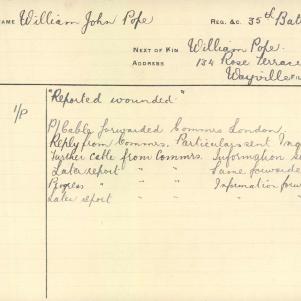 NAME William John Pope REG. &C. 35th Bat
NEXT OF KIN William Pope
ADDRESS 134 Rose Terrace
Wayville
"Reported wounded"
P/Cable forwarded Commrs London
Reply from Commrs. Particulars sent Inq
Further cable from Commrs. Information
Later report " " Same forwarde
Progress " " Information forw
Later report " "